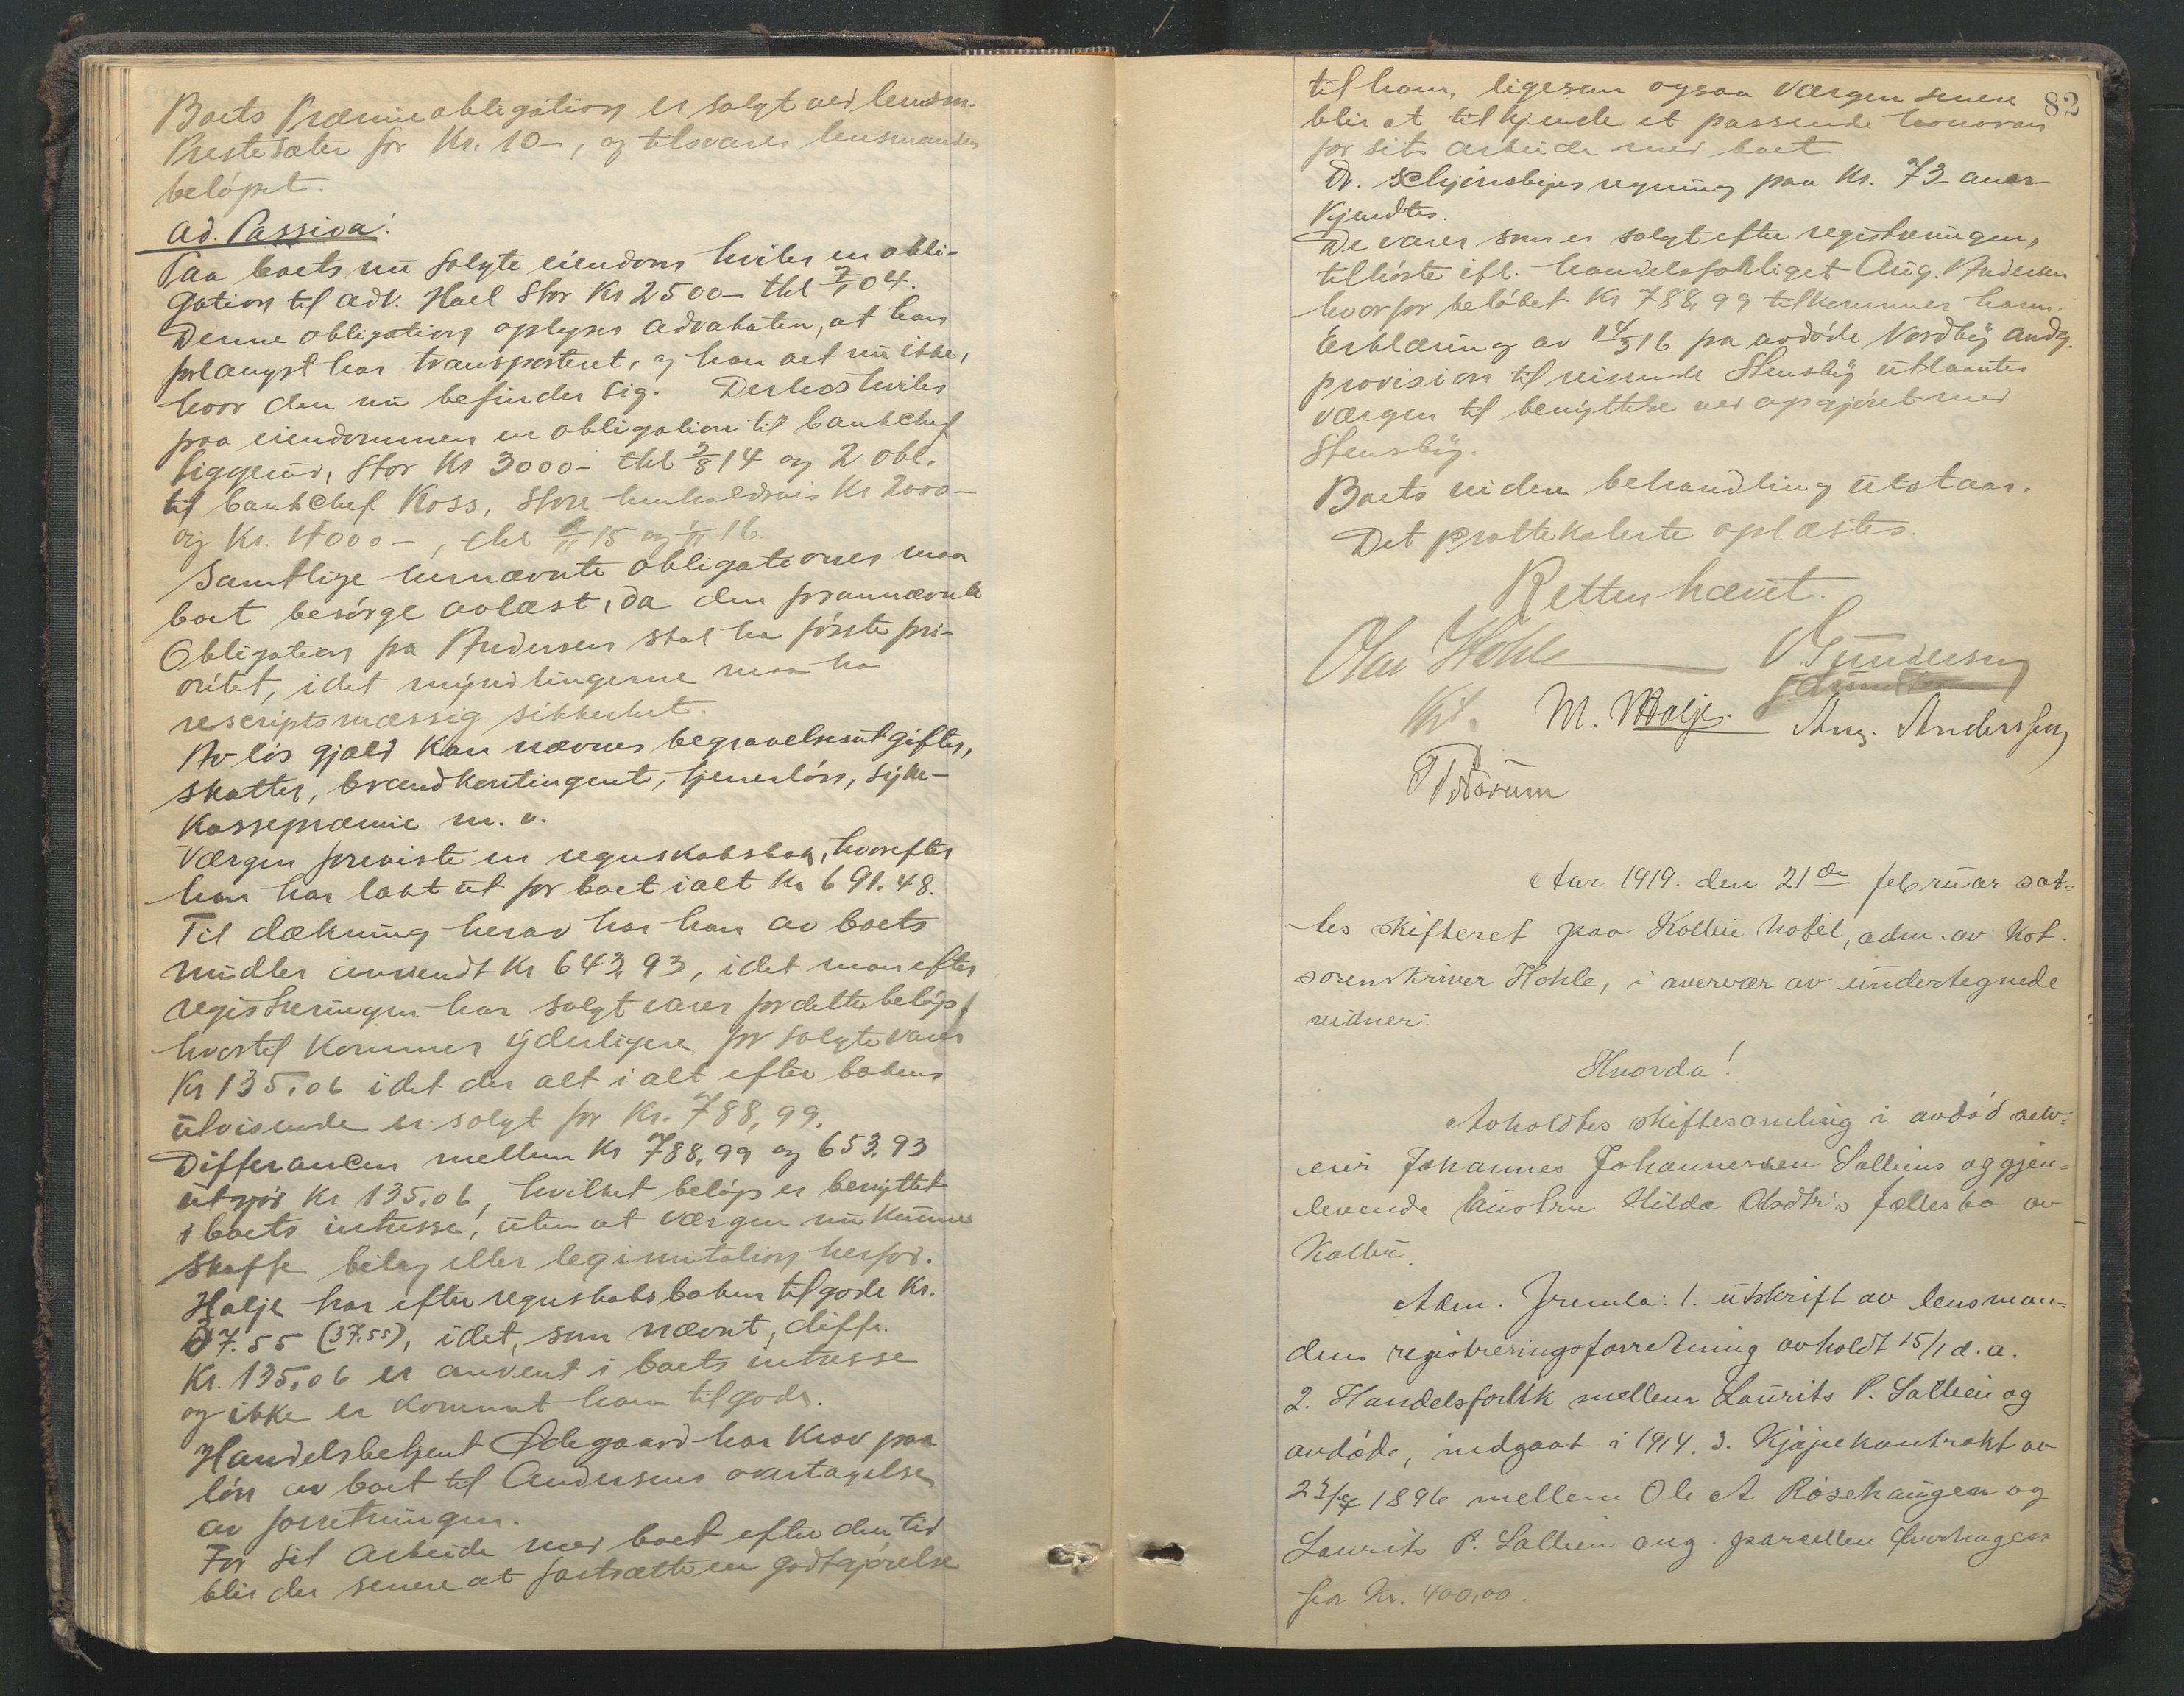 Boets Præmieobligation er solgt ved lensm.
Prestesæter for Kr. 10–, og tilsvarer lensmanden
beløpet.
Ad. Passiva:
Paa boets nu solgte eiendom hviler en obli-
gation til adv. Hoel stor Kr 2500– thl 7/1 04.
Denne obligation oplyser advokaten, at han
forlængst har transporteret, og han vet nu ikke,
hvor den nu befinder sig. Derhos hviler
paa eiendommen en obligation til bankchef
Liggerud, stor Kr 3000– thl 3/8 14 og 2 obl.
til bankchef Koss, store henholdsvis Kr 2000–
og Kr. 4000–, thl 9/11 15 og 1/11 16.
Samtlige hernævnte obligationer maa
boet besørge avlæst, da den forannævnte
Obligation fra Andersen skal ha første pri-
oritet, idet myndlingerne maa ha
rescriptsmæssig sikkerhet.
Av løs gjæld kan nævnes begravelsesutgifter,
skatter, brandkontingent, tjenerløn, syke-
kassepræmie m. v.
Værgen foreviste en regnskabsbok, hvorefter
han har lakt ut for boet ialt Kr 691.48.
Til dækning herav har han av boets
midler anvendt Kr 643,93, idet man efter
registreringen har solgt varer for dette beløp,
hvortil kommer yderligere for solgte varer
Kr 135,06 idet der alt i alt efter bokens
utvisende er solgt for Kr. 788,99.
Differancen mellem Kr 788,99 og 653,93
utgjør Kr 135,06, hvilket beløp er benyttet
i boets intresse, uten at værgen nu kunne
skaffe bilag eller legimitation herfor.
Halje har efter regnskabsboken tilgode Kr.
37.55 (37.55), idet, som nævnt, diffr.
Kr. 135,06 er anvent i boets intresse
og ikke er kommet ham tilgode.
Handelsbetjent Ødegaard har krav paa
løn av boet til Andersens overtagelse
av forretningen.
For sit arbeide med boet efter den tid
blir der senere at fastsætte en godtgjørelse
82
til ham, ligesom ogsaa værgen senere
blir at tilkjende et passende honorar
for sit arbeide med boet.
Dr. Schjønsbyes regning paa Kr. 73– aner-
kjendtes.
De varer som er solgt efter registreringen,
tilhørte ifl. handelsforliget Aug. Andersen
hvorfor beløbet Kr 788,99 tilkommer ham.
Erklæring av 14/3 16 fra avdøde Nordby angg.
provision til reisende Stensby utlaantes
værgen til benyttelse ved opgjøret med
Stensby.
Boets videre behandling utstaar.
Det prottekolerte oplæstes.
Retten hævet.
Olav Hohle V. Gundersen
M. Halje. Aug. Anderssen
Aar 1919. den 21de februar sat-
tes skifteret paa Kolbu hotel, adm. av kst.
sorenskriver Hohle, i overvær av undertegnede
vidner:
Hvorda!
Avholdtes skiftesamling i avdød selv-
eier Johannes Johannessen Salliens og gjen-
levende hustru Hilda Olsdtr's fællesbo av
Kolbu.
Adm. fremla: 1. utskrift av lensman-
dens registreringsforretning avholdt 15/1 d. a.
2. Handelsforlik mellem Laurits P. Sallien og
avdøde, indgaat i 1914. 3. Kjøpekontrakt av
23/4 1896 mellem Ole A Røsehaugen og
Laurits P. Sallien ang. parcellen Øverhagen
for Kr. 400,00.